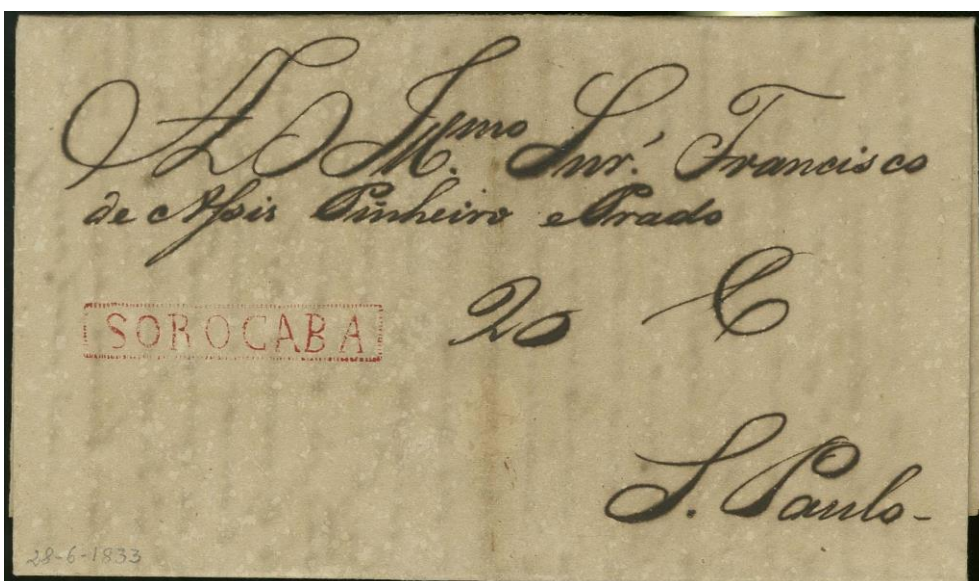 Ao Illmo Snr. Francisco
de Assis Pinheiro e Prado
SOROCABA
20 C
S. Paulo-
28-6-1833